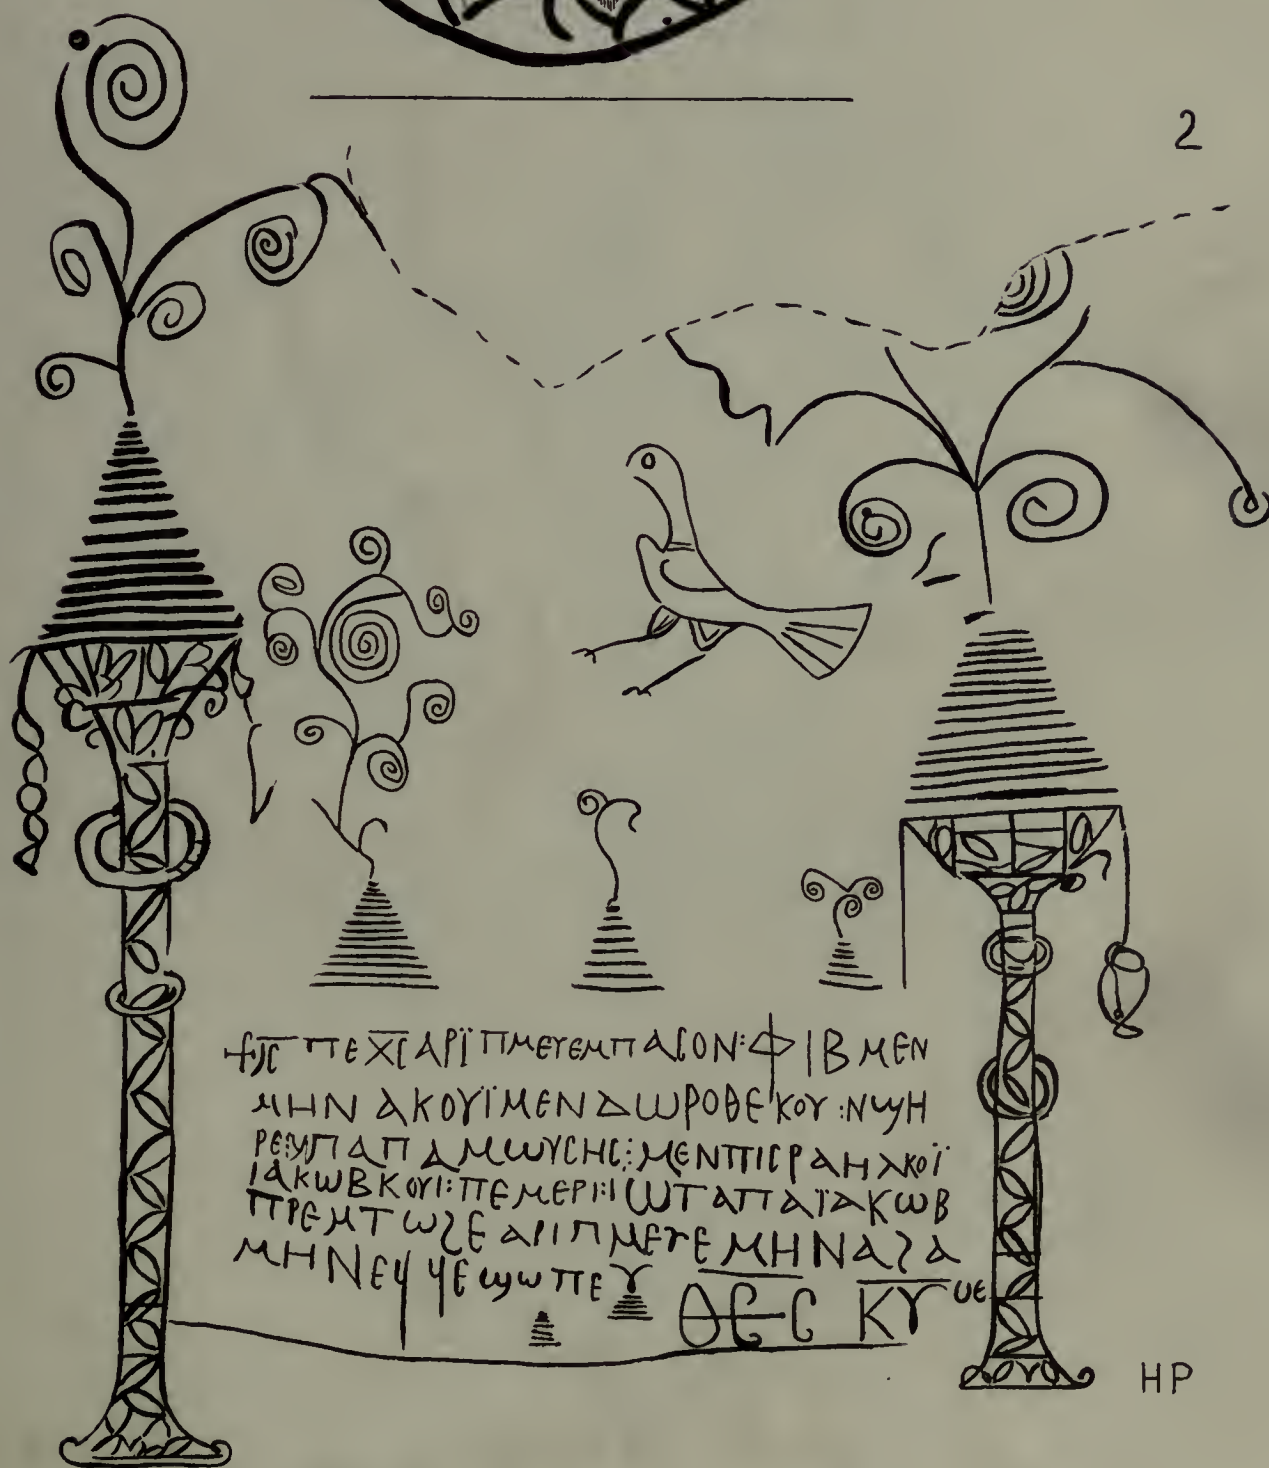 2
ⲠⲈ ⲬⲤ ⲀⲢⲒ̈ ⲠⲘⲈⲨⲈ ⲘⲠⲀⲤⲞⲚ: ⲪⲒⲂ ⲘⲈⲚ
ⲘⲎⲚ ⲀⲔⲞⲨⲒ̈ ⲘⲈⲚ ⲆⲰⲢⲞⲐⲈ ⲔⲞⲨ : ⲚϢⲎ
ⲢⲈ: ⲀⲠⲀ ⲘⲰⲨⲤⲎⲤ: ⲘⲈⲚ ⲠⲒⲤⲢⲀⲎⲖ ⲔⲞⲒ̈
ⲒⲀⲔⲰⲂ ⲔⲞⲨⲒ: ⲠⲈⲘⲈⲢⲒ: ⲒⲰⲦ ⲀⲠⲀ Ⲓ̈ⲀⲔⲰⲂ
ⲠⲢⲈⲘⲦⲰϨⲈ ⲀⲢⲒ ⲠⲘⲈⲨⲈ ⲘⲎⲚⲀ ϨⲀ
ⲘⲎⲚ ⲈϤⲈϢⲰⲠⲈ
ⲐⲈⲤ ⲔⲨ
HP